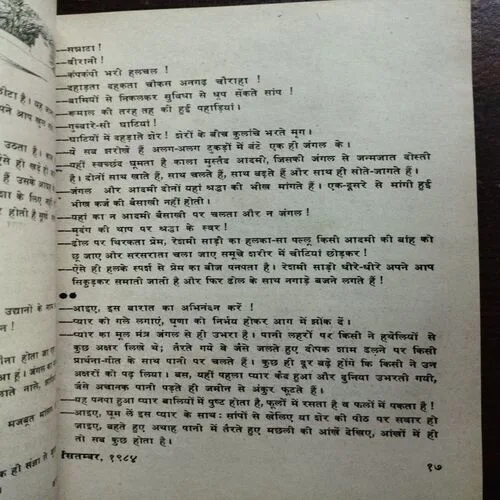 —सन्नाटा !
—वीरानी !
—कंपकंपी भरी हलचल !
—दहाड़ता दहकता चौकस अनगढ़ चौराहा !
—बाम्बियों से निकलकर सुविधा से धूप सेंकते सांप !
—रूमाल की तरह तह की हुई पहाड़ियां।
—गुब्बारे-सी घाटियां !
—घाटियों में दहाड़ते शेर ! शेरों के बीच कुलांचे भरते मृग।
—ये सब झरोखे हैं अलग-अलग टुकड़ों में बंटे एक ही जंगल के।
—यहाँ स्वच्छंद घूमता है काला मुस्तैद आदमी, जिसकी जंगल से जन्मजात दोस्ती
है। दोनों साथ खाते हैं, साथ चलते हैं, साथ बढ़ते हैं और साथ ही सोते-जागते हैं।
—जंगल और आदमी दोनों यहां श्रद्धा की भीख मांगते हैं। एक-दूसरे से मांगी हुई
भीख कर्ज की बैसाखी नहीं होती।
—यहां का न आदमी बैसाखी पर चलता और न जंगल !
—मृदंग की थाप पर श्रद्धा के स्वर !
—ढोल पर थिरकता प्रेम, रेशमी साड़ी का हलका-सा पल्लू किसी आदमी की बांह को
छू जाए और सरसराता चला जाए समूचे शरीर में चींटियां छोड़कर !
—ऐसे ही हलके स्पर्श से प्रेम का बीज पनपता है। रेशमी साड़ी धीरे-धीरे अपने आप
सिकुड़कर समाती जाती है और फिर ढोल के साथ नगाड़े बजने लगते हैं !
—आइए, इस बारात का अभिनंदन करें !
—प्यार को गले लगाएं, घृणा को निर्भय होकर आग में झोंक दें।
—प्यार का मूल मंत्र जंगल से ही उभरा है। पानी लहरों पर किसी ने हथेलियों से
कुछ अक्षर लिखे थे; तैरते गये वे जैसे जलते हुए दीपक शाम ढलने पर किसी
प्रार्थना-गीत के साथ पानी पर चलते हैं। कुछ ही दूर बढ़े होंगे कि किसी ने उन
अक्षरों को पढ़ लिया। बस, यहीं पहला प्यार कैद हुआ और दुनिया उभरती गयी,
जैसे अचानक पानी पड़ते ही जमीन से अंकुर फूटते हैं।
—यह पनपा हुआ प्यार बालियों में पुष्ट होता है, फूलों में रसता है व फलों में पकता है !
—आइए, घूम लें इस प्यार के साथ: सांपों से खेलिए या शेर की पीठ पर सवार हो
जाइए, बहते हुए अथाह पानी में तैरते हुए मछली की आंखें देखिए, आंखों में ही
तो सब कुछ होता है।
सितम्बर, १९८४
१७